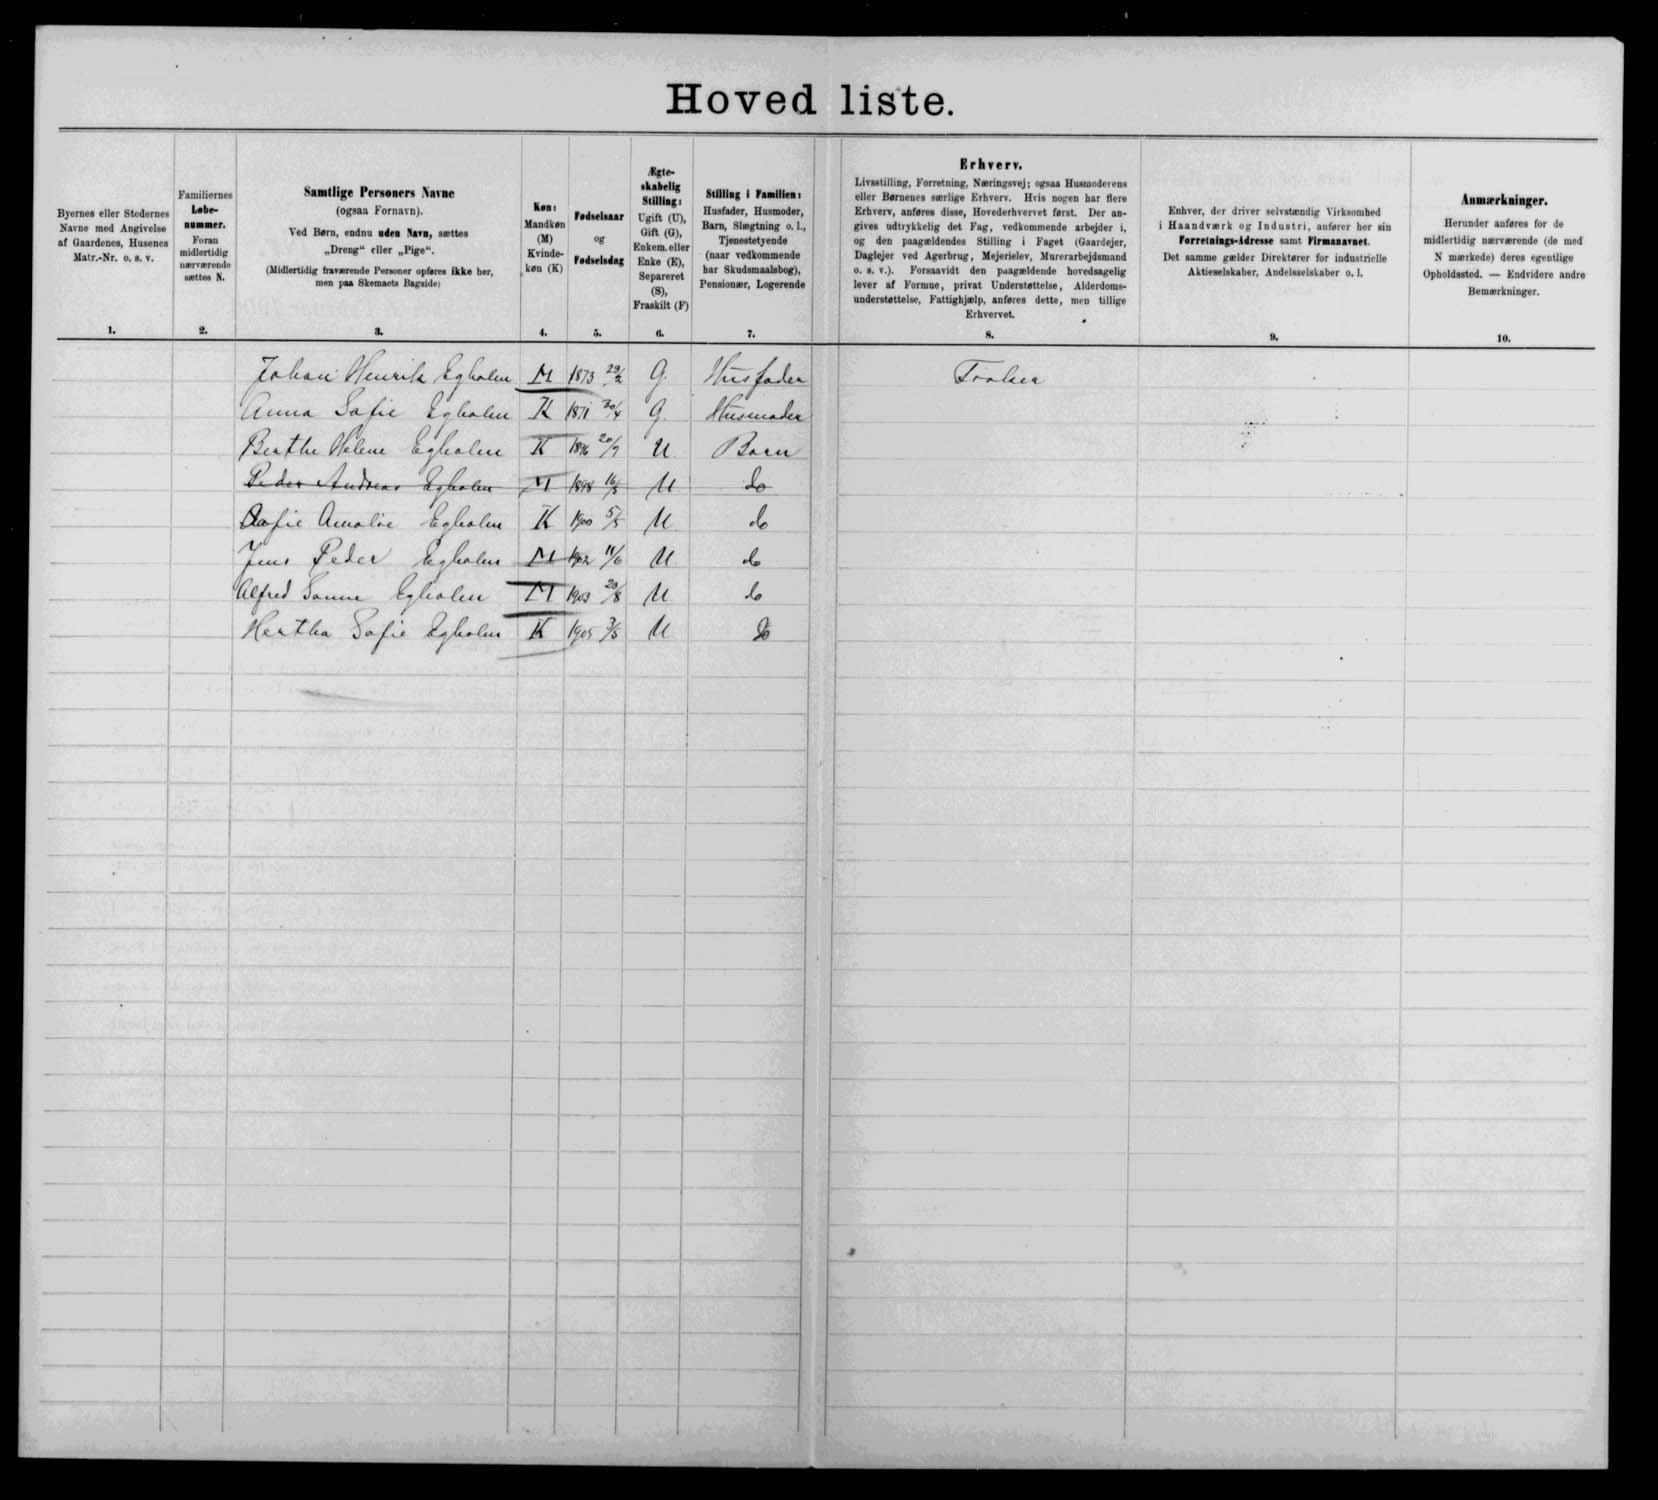 Hoved liste.
Byernes eller Stedernes
Navne med Angivelse
af Gaardenes, Husenes
Matr.-Nr. o. s. v.
1.
Familiernes
Løbe-
nummer.
Foran
midlertidig
nærværende
sættes N.
2.
Samtlige Personers Navne
(ogsaa Fornavn).
Ved Børn, endnu uden Navn, sættes
„Dreng“ eller „Pige“.
(Midlertidig fraværende Personer opføres ikke her,
men paa Skemaets Bagside)
3.
Køn:
Mandkøn
(M)
Kvinde-
køn (K)
4.
Fødselsaar
og
Fødselsdag
5.
Ægte-
skabelig
Stilling:
Ugift (U),
Gift (G),
Enkem. eller
Enke (E),
Separeret
(S),
Fraskilt (F)
6.
Stilling i Familien:
Husfader, Husmoder,
Barn, Slægtning o. l.,
Tjenestetyende
(naar vedkommende
har Skudsmaalsbog),
Pensionær, Logerende
7.
Erhverv.
Livsstilling, Forretning, Næringsvej; ogsaa Husmoderens
eller Børnenes særlige Erhverv. Hvis nogen har flere
Erhverv, anføres disse, Hovederhvervet først. Der an-
gives udtrykkelig det Fag, vedkommende arbejder i,
og den paagældendes Stilling i Faget (Gaardejer,
Daglejer ved Agerbrug, Mejerielev, Murerarbejdsmand
o. s. v.). Forsaavidt den paagældende hovedsagelig
lever af Formue, privat Understøttelse, Alderdoms-
understøttelse, Fattighjælp, anføres dette, men tillige
Erhvervet.
8.
Enhver, der driver selvstændig Virksomhed
i Haandværk og Industri, anfører her sin
Forretnings-Adresse samt Firmanavnet.
Det samme gælder Direktører for industrielle
Aktieselskaber, Andelsselskaber o. l.
9.
Anmærkninger.
Herunder anføres for de
midlertidig nærværende (de med
N mærkede) deres egentlige
Opholdssted. — Endvidere andre
Bemærkninger.
10.
Johan Henrik Egholm M 1873 29/2 G. Husfader
Anna Sofie Egholm K 1871 30/4 G. Husmoder
Berthe Helene Egholm K 1896 20/9 U Barn
Peder Andreas Egholm M 1898 16/5 U do
Sofie Amalie Egholm K 1900 5/5 U do
Jens Peder Egholm M 1902 11/6 U do
Alfred Sonne Egholm M 1903 29/8 U do
Hertha Sofie Egholm K 1905 3/5 U do